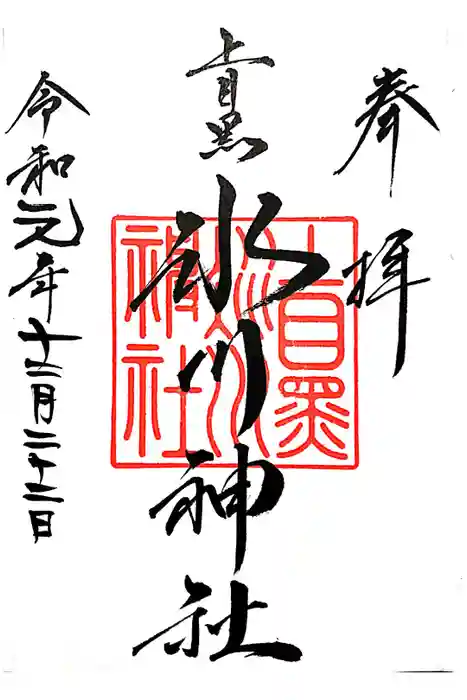 奉拝
上目黒
氷川神社
上目黒氷川神社
令和元年十二月二十二日